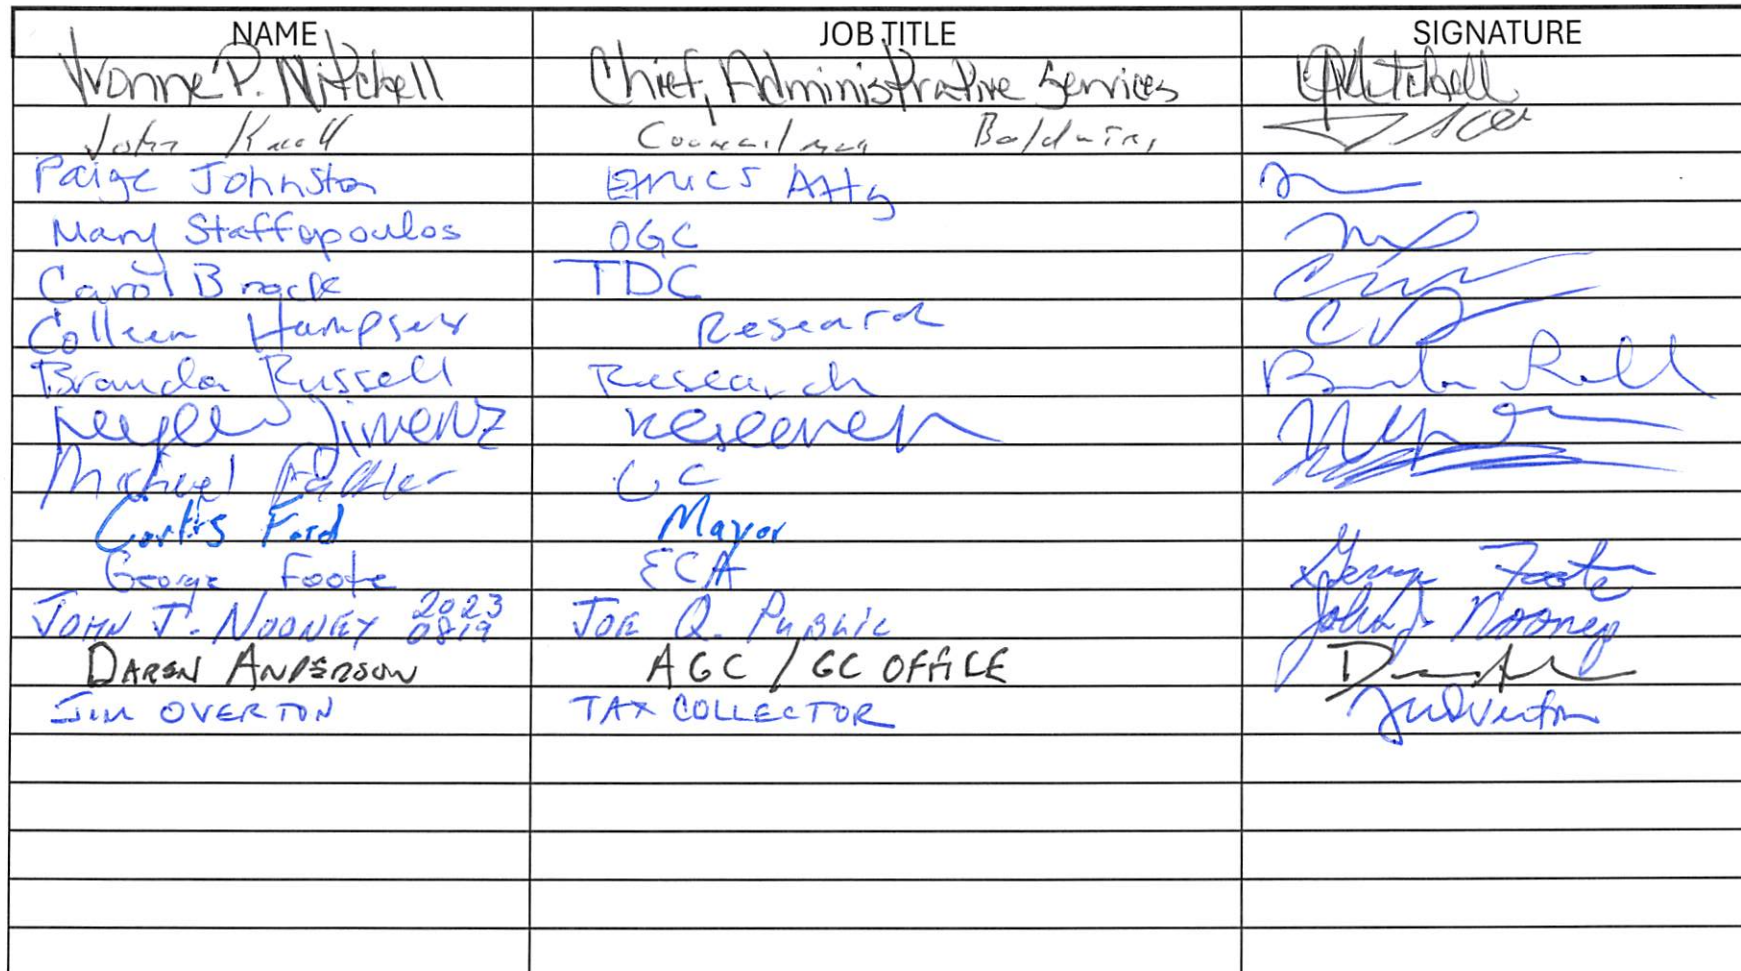 NAME JOB TITLE SIGNATURE
Yvonne P. Mitchell Chief, Administrative Services Mitchell
John Knoll Councilman Baldwin,
Paige Johnston Ethics Atty
Mary Staffopoulos OGC
Carol Brock TDC
Colleen Hampsey Research
Brandon Russell Research
Jimenez Research
Michael CC
Curtis Ford Mayor
George Foote ECA George Foote
JOHN J. NOONEY 2023 0819 JOE Q. PUBLIC John J. Nooney
DAREN ANDERSON AGC / GC OFFICE
JIM OVERTON TAX COLLECTOR JWOverton